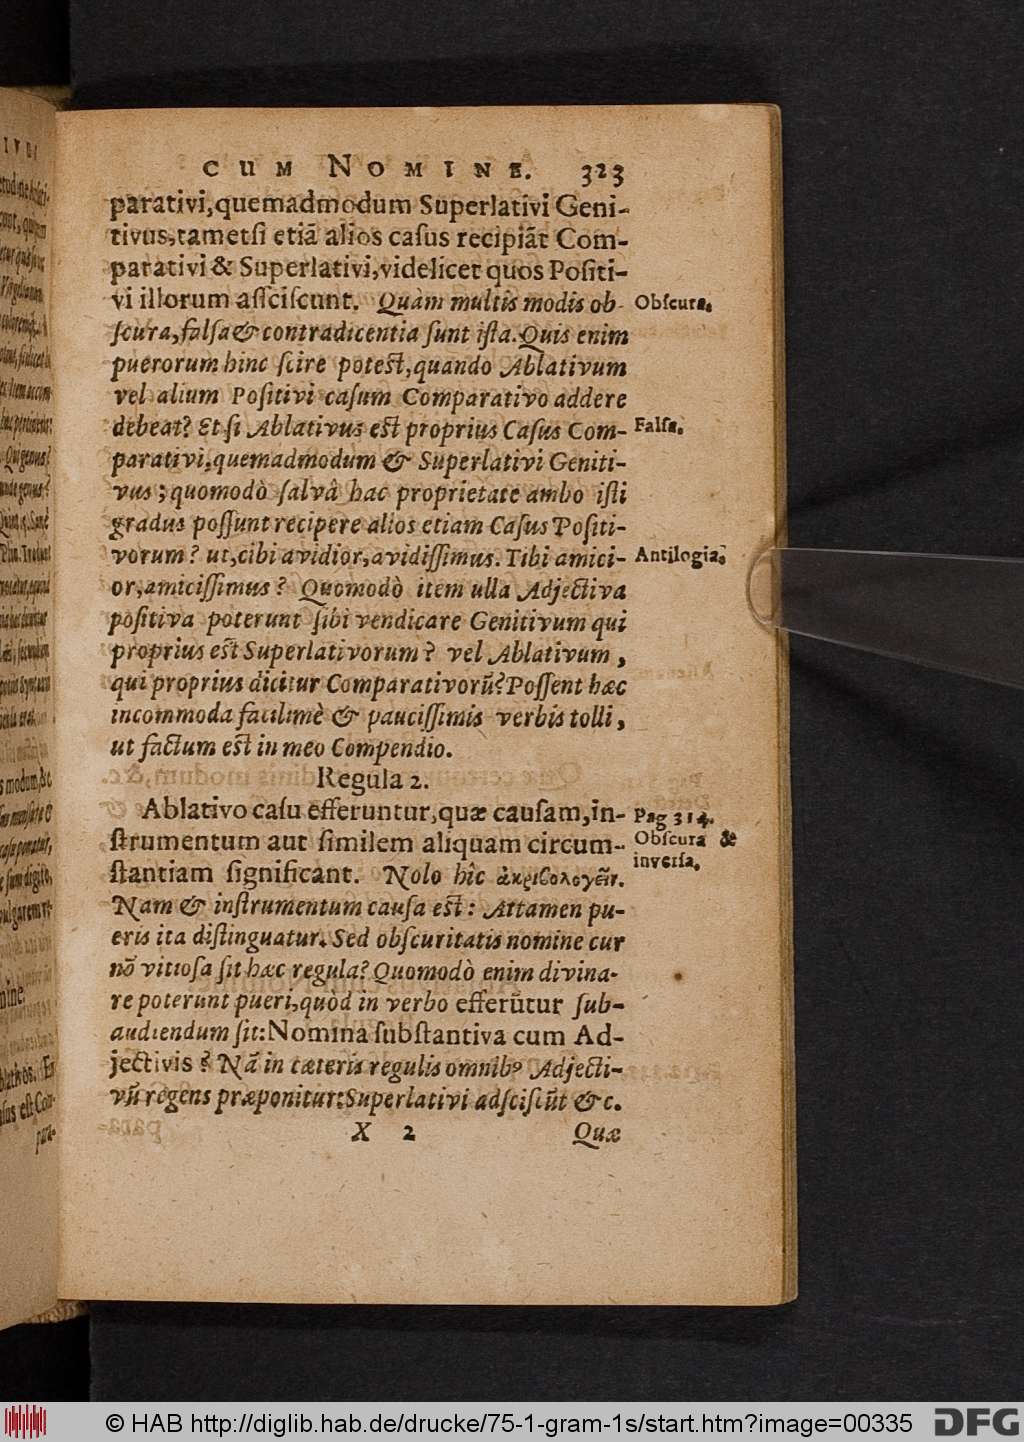 CUM NOMINE. 323
parativi,quemadmodum Superlativi Geni-
tivus,tametſi etiã alios caſus recipiãt Com-
parativi & Superlativi,videlicet quos Poſiti-
vi illorum aſſciſcunt. Quàm multis modis ob-
ſcura,falſa & contradicentia ſunt iſta. Quis enim
puerorum hinc ſcire poteſt,quando Ablativum
vel alium Poſitivi caſum Comparativo addere
debeat? Et ſi Ablativus eſt proprius Caſus Com-
parativi,quemadmodum & Superlativi Geniti-
vus; quomodò ſalvâ hac proprietate ambo iſti
gradus poſſunt recipere alios etiam Caſus Poſiti-
vorum? ut,cibi avidior,avidiſſimus. Tibi amici-
or,amiciſſimus? Quomodò item ulla Adjectiva
poſitiva poterunt ſibi vendicare Genitivum qui
proprius eſt Superlativorum? vel Ablativum,
qui proprius dicitur Comparativorũ? Poſſent hæc
incommoda facilimè & pauciſſimis verbis tolli,
ut factum eſt in meo Compendio.
Obſcura.
Falſa.
Antilogia.
Regula 2.
Ablativo caſu efferuntur,quæ cauſam,in-
ſtrumentum aut ſimilem aliquam circum-
ſtantiam ſignificant. Nolo hîc ἀκριβολογεῖν.
Nam & inſtrumentum cauſa eſt: Attamen pu-
eris ita diſtinguatur. Sed obſcuritatis nomine cur
nõ vitioſa ſit hæc regula? Quomodò enim divina-
re poterunt pueri,quòd in verbo efferũtur ſub-
audiendum ſit: Nomina ſubſtantiva cum Ad-
jectivis? Nã in cæteris regulis omnibꝰ Adjecti-
vũ regens præponitur: Superlativi adſciſcũt &c.
Pag 314.
Obſcura &
inverſa.
X 2 Quæ
© HAB http://diglib.hab.de/drucke/75-1-gram-1s/start.htm?image=00335
DFG